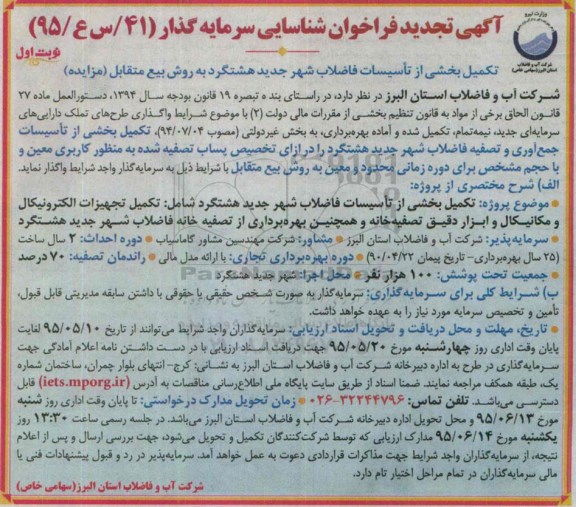 وزارت نیرو
شرکت آب و فاضلاب
استان البرز (سهامی خاص)
آگهی تجدید فراخوان شناسایی سرمایه گذار (۴۱/س ع /۹۵)
نوبت اول
تکمیل بخشی از تأسیسات فاضلاب شهر جدید هشتگرد به روش بیع متقابل (مزایده)
شرکت آب و فاضلاب استان البرز در نظر دارد، در راستای بند ه تبصره ۱۹ قانون بودجه سال ۱۳۹۴، دستورالعمل ماده ۲۷
قانون الحاق برخی از مواد به قانون تنظیم بخشی از مقررات مالی دولت (۲) با موضوع شرایط واگذاری طرح‌های تملک دارایی‌های
سرمایه‌ای جدید، نیمه‌تمام، تکمیل شده و آماده بهره‌برداری، به بخش غیردولتی (مصوب ۹۴/۰۷/۰۴)، تکمیل بخشی از تأسیسات
جمع‌آوری و تصفیه فاضلاب شهر جدید هشتگرد را در ازای تخصیص پساب تصفیه شده به منظور کاربری معین و
با حجم مشخص برای دوره زمانی محدود و معین به روش بیع متقابل با شرایط ذیل به سرمایه‌گذار واجد شرایط واگذار نماید.
الف) شرح مختصری از پروژه:
• موضوع پروژه: تکمیل بخشی از تأسیسات فاضلاب شهر جدید هشتگرد شامل: تکمیل تجهیزات الکترونیکال
و مکانیکال و ابزار دقیق تصفیه‌خانه و همچنین بهره‌برداری از تصفیه خانه فاضلاب شهر جدید هشتگرد
• سرمایه‌پذیر: شرکت آب و فاضلاب استان البرز • مشاور: شرکت مهندسین مشاور گاماسیاب • دوره احداث: ۲ سال ساخت
(۲۵ سال بهره‌برداری- تاریخ پیمان ۹۰/۰۴/۲۲) • دوره بهره‌برداری تجاری: با ارائه مدل مالی • راندمان تصفیه: ۷۰ درصد
• جمعیت تحت پوشش: ۱۰۰ هزار نفر • محل اجرا: شهر جدید هشتگرد
ب) شرایط کلی برای سرمایه‌گذاری: سرمایه‌گذار به صورت شخص حقیقی یا حقوقی با داشتن سابقه مدیریتی قابل قبول،
تأمین و تخصیص سرمایه مورد نیاز را به عهده خواهد داشت.
• تاریخ، مهلت و محل دریافت و تحویل اسناد ارزیابی: سرمایه‌گذاران واجد شرایط می‌توانند از تاریخ ۹۵/۰۵/۱۰ لغایت
پایان وقت اداری روز چهارشنبه مورخ ۹۵/۰۵/۲۰ جهت دریافت اسناد ارزیابی با در دست داشتن نامه اعلام آمادگی جهت
سرمایه‌گذاری در طرح به اداره دبیرخانه شرکت آب و فاضلاب استان البرز به نشانی: کرج- انتهای بلوار چمران، ساختمان شماره
یک، طبقه همکف مراجعه نمایند. ضمنا اسناد از طریق سایت پایگاه ملی اطلاع‌رسانی مناقصات به آدرس (iets.mporg.ir) قابل
دسترسی می‌باشد. تلفن تماس: ۳۲۲۴۴۷۹۶-۰۲۶ • زمان تحویل مدارک درخواستی: تا پایان وقت اداری روز شنبه
مورخ ۹۵/۰۶/۱۳ و محل تحویل اداره دبیرخانه شرکت آب و فاضلاب استان البرز می‌باشد. در جلسه رسمی ساعت ۱۳:۳۰ روز
یکشنبه مورخ ۹۵/۰۶/۱۴ مدارک ارزیابی که توسط شرکت‌کنندگان تکمیل و تحویل می‌شود، جهت بررسی ارسال و پس از اعلام
نتیجه، از سرمایه‌گذاران واجد شرایط جهت مذاکرات قراردادی دعوت به عمل خواهد آمد. سرمایه‌پذیر در رد و قبول پیشنهادات فنی یا
مالی سرمایه‌گذاران در تمام مراحل اختیار تام دارد.
شرکت آب و فاضلاب استان البرز (سهامی خاص)